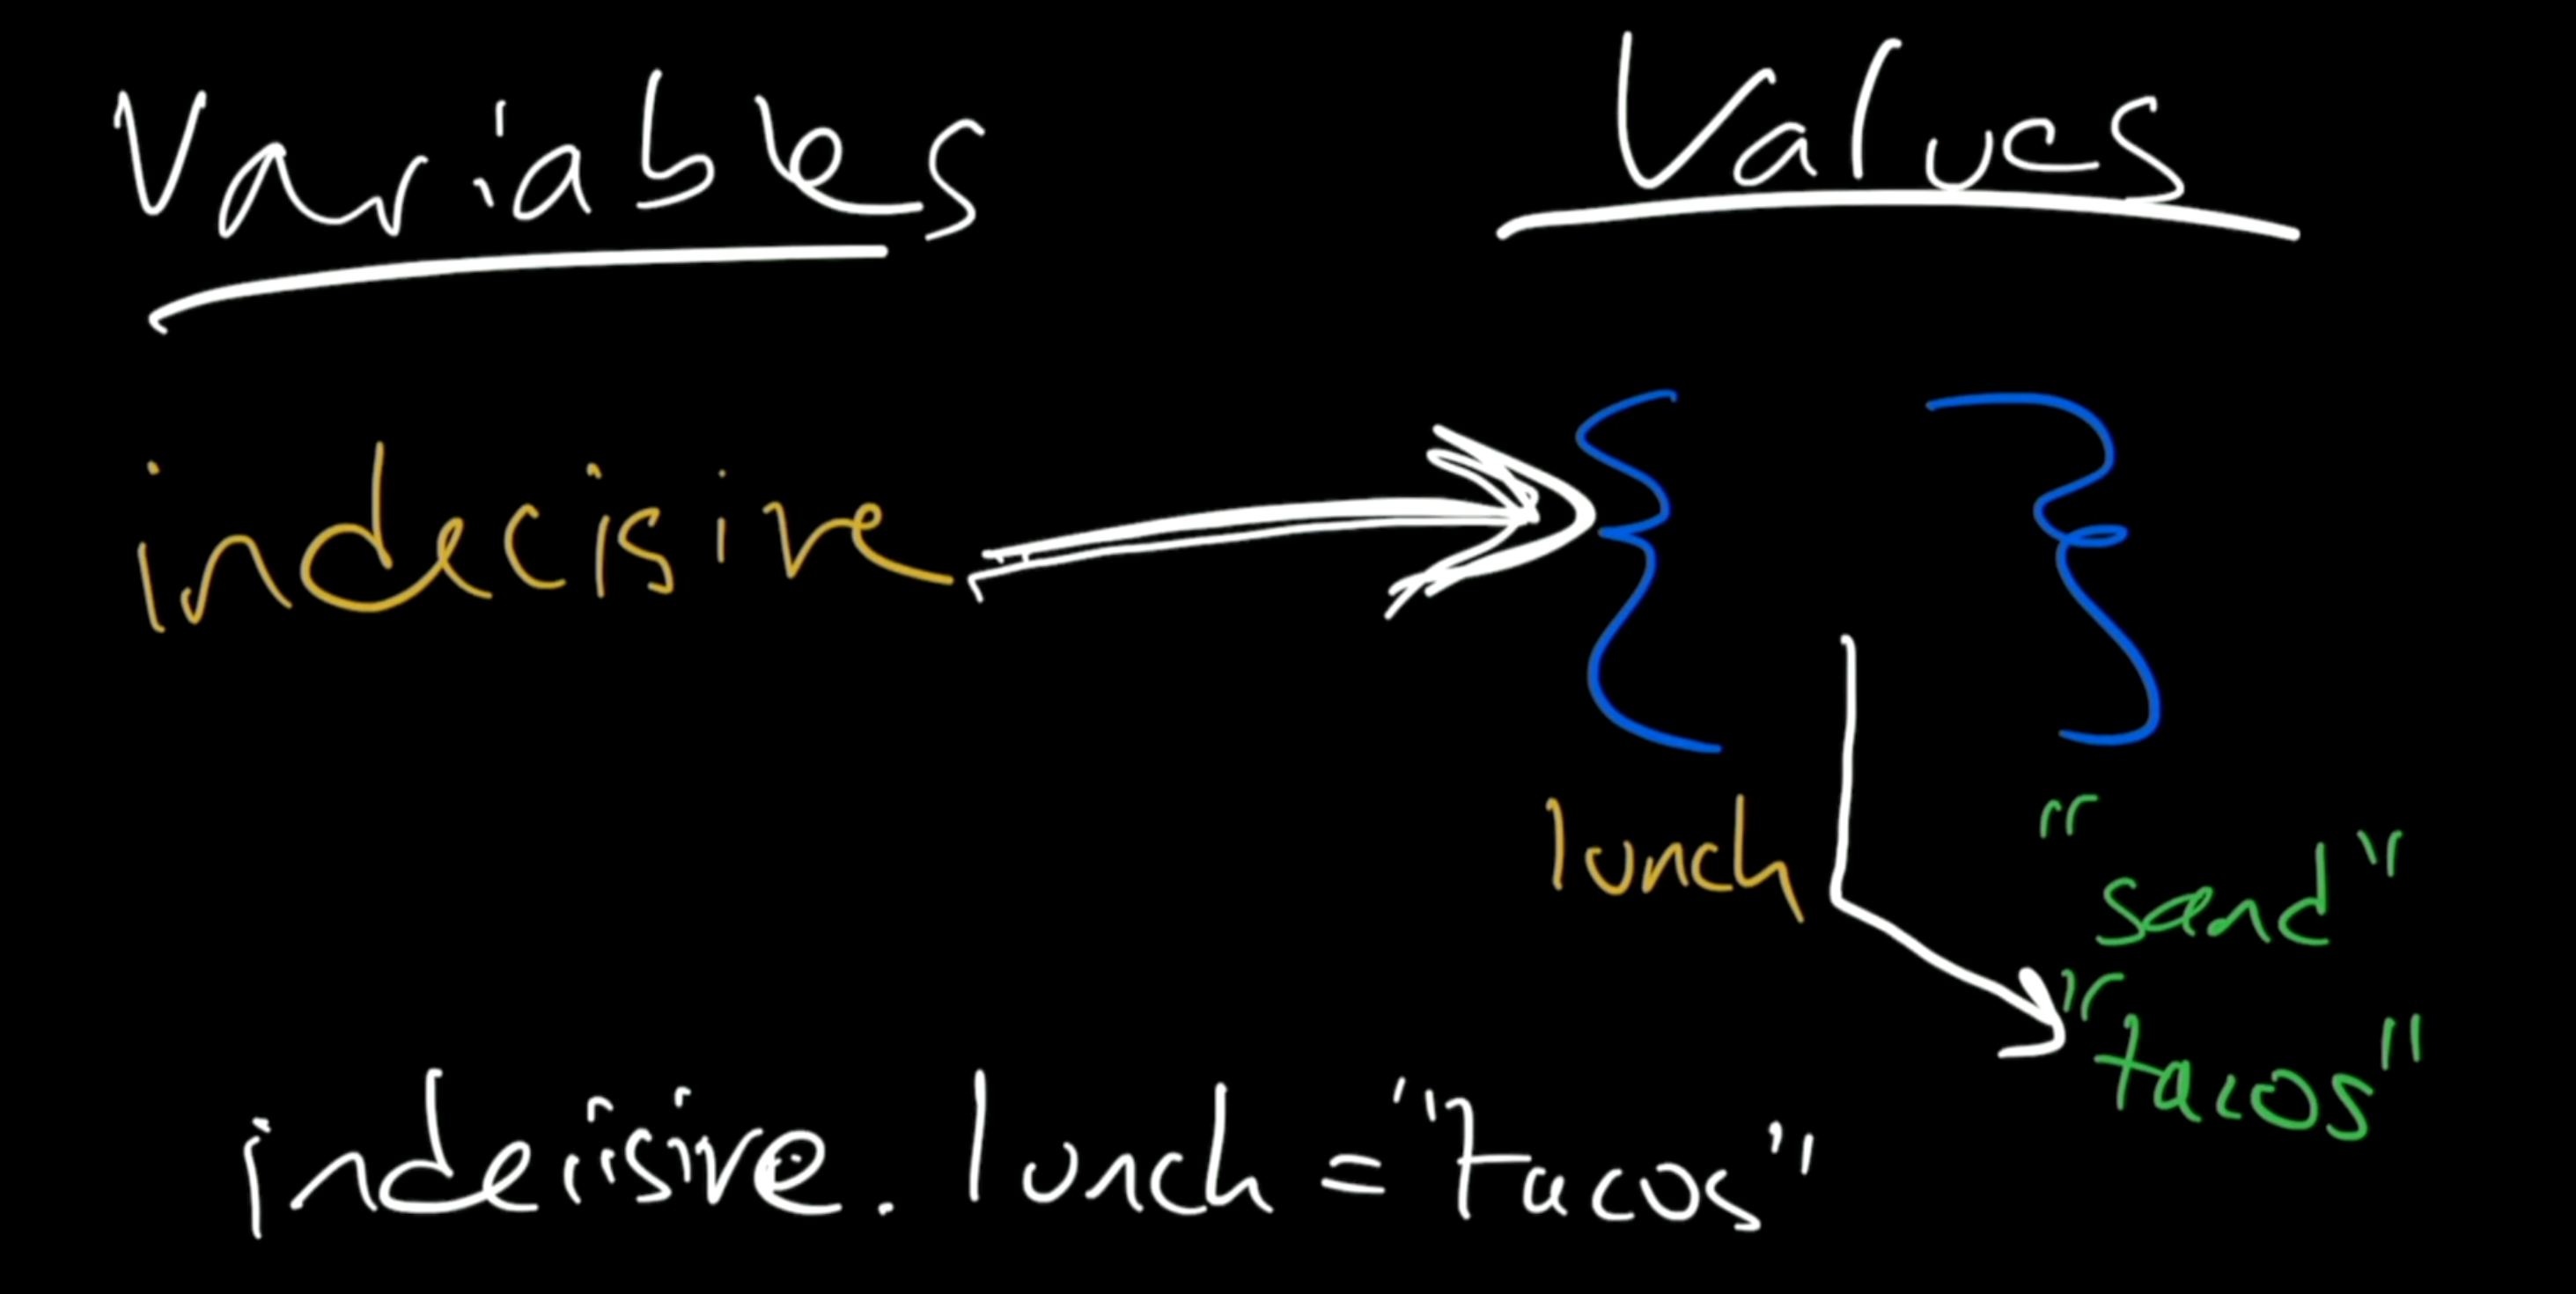 Variables
Values
indecisive
{ }
lunch
"sand"
"tacos"
indecisive.lunch = "tacos"